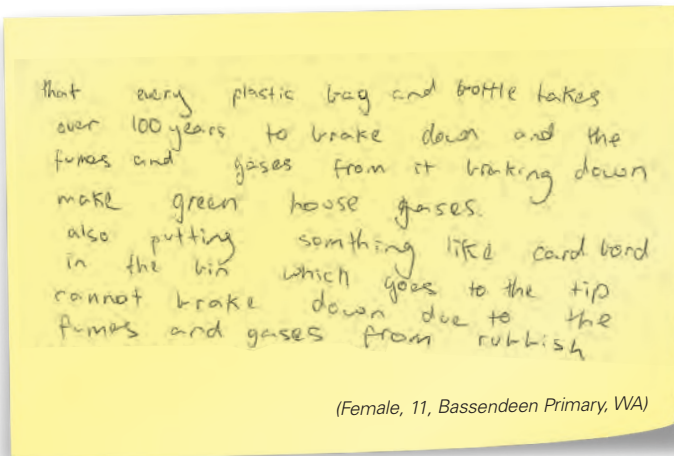 that every plastic bag and bottle takes
over 100 years to brake down and the
fumes and gases from it braking down
make green house gases.
also putting somthing like card bord
in the bin which goes to the tip
cannot brake down due to the
fumes and gases from rubbish
(Female, 11, Bassendeen Primary, WA)